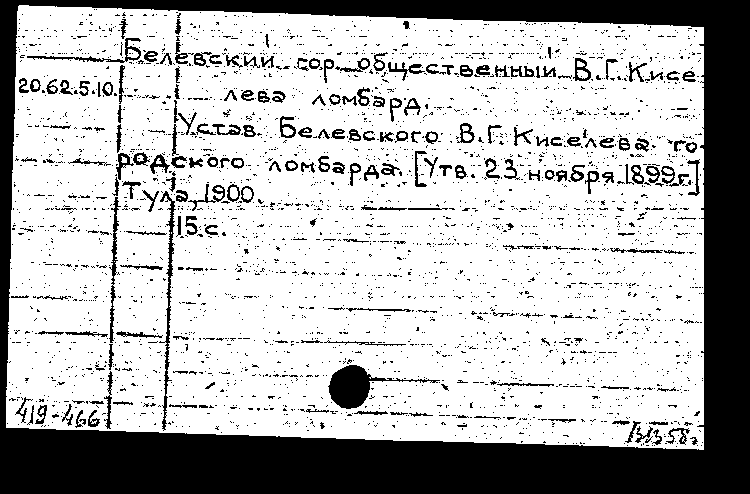 Белевский гор. общественный В.Г. Кисе
20.62.5.10.
лева ломбард.
Устав Белевского В.Г. Киселева го-
родского ломбарда. [Утв. 23 ноября 1899г.]
Тула, 1900.
15 с.
419-466